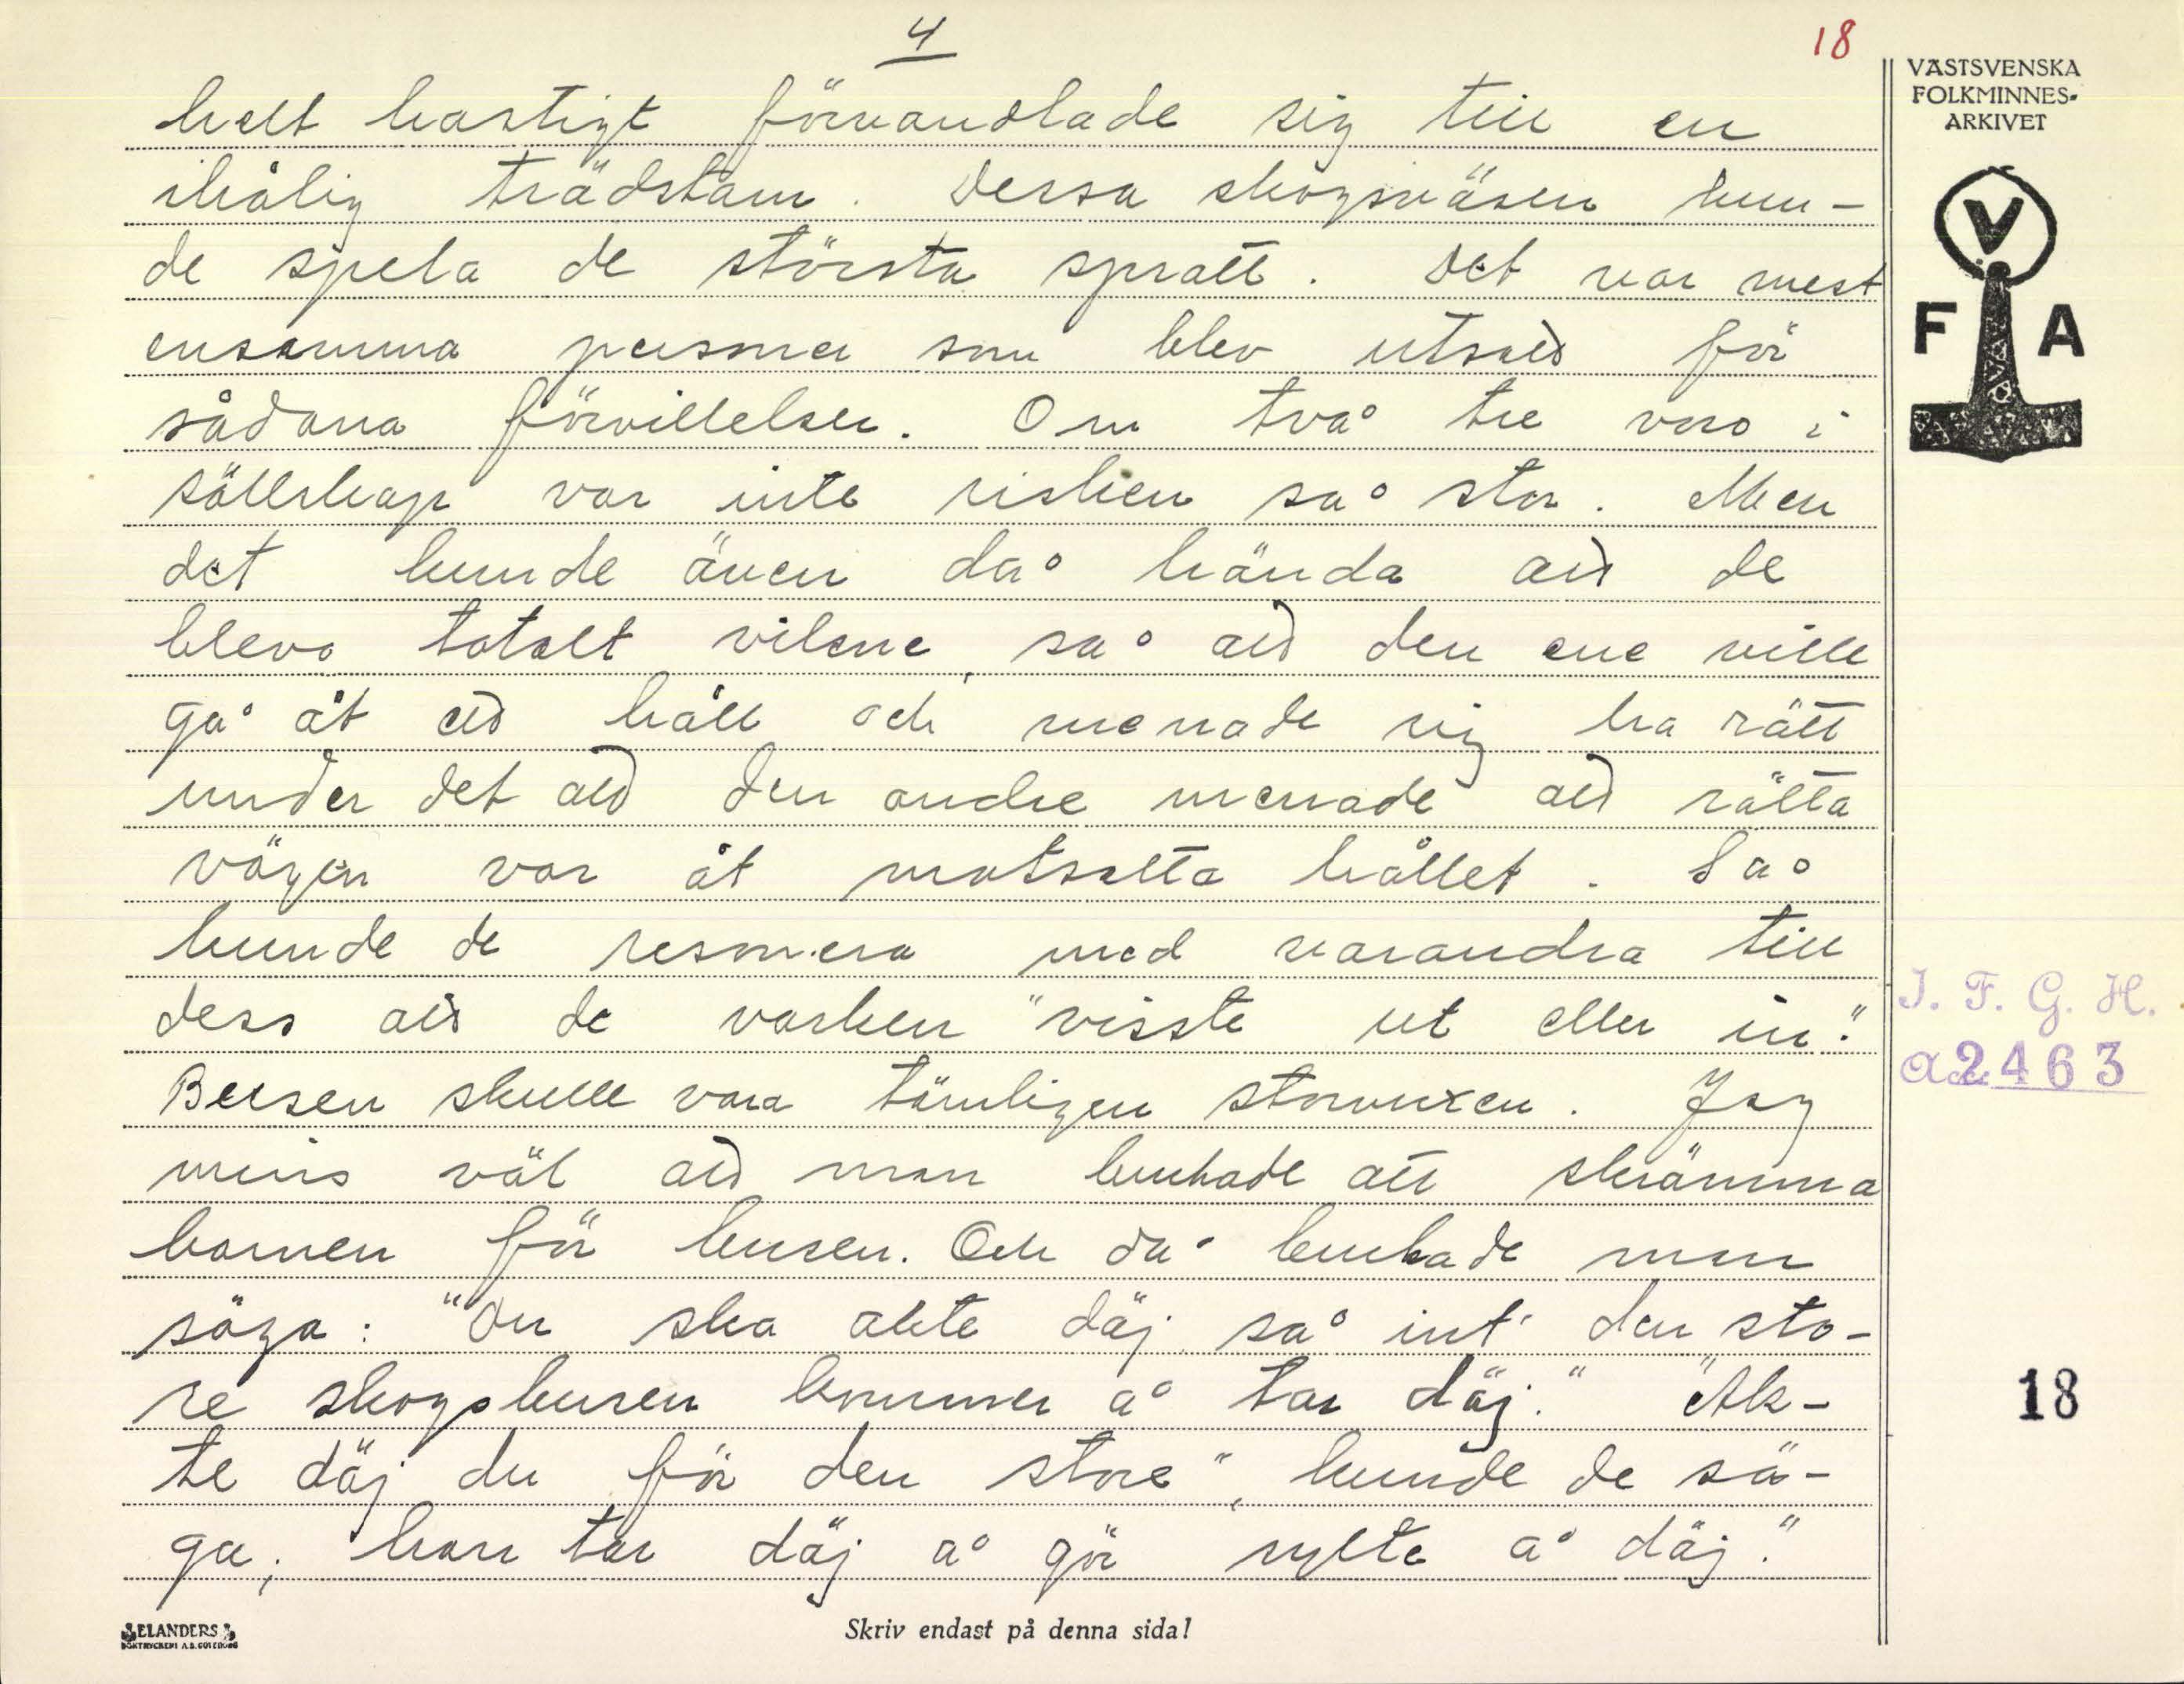 4
18
helt hastigt förvandlade sig till en
ihålig trädstam. Dessa skogsväsen kun-
de spela de största spratt. Det var mest
ensamma personer som blev utsatt för
sådana förvillelser. Om två tre voro i
sällskap var inte risken så stor. Men
det kunde även då hända att de
blevo totalt vilsne, så att den ene ville
gå åt ett håll och menade sig ha rätt
under det att den andre menade att rätta
vägen var åt motsatta hållet. Så
kunde de resonera med varandra till
dess att de varken "visste ut eller in."
Busen skulle vara tämligen storvuxen. Jag
mins väl att man brukade att skrämma
barnen för busen. Och då brukade man
säga: "Du ska akte däj så int' den sto-
re skogsbusen kommer å tar däj." "Ak-
te däj du för den store", kunde de sä-
ga, "han tar däj å gör sylta å däj."
VÄSTSVENSKA
FOLKMINNES-
ARKIVET
V
F A
I. F. G. H.
acc. 2463
18
ELANDERS
BOKTRYCKERI A.B. GÖTEBORG
Skriv endast på denna sida!